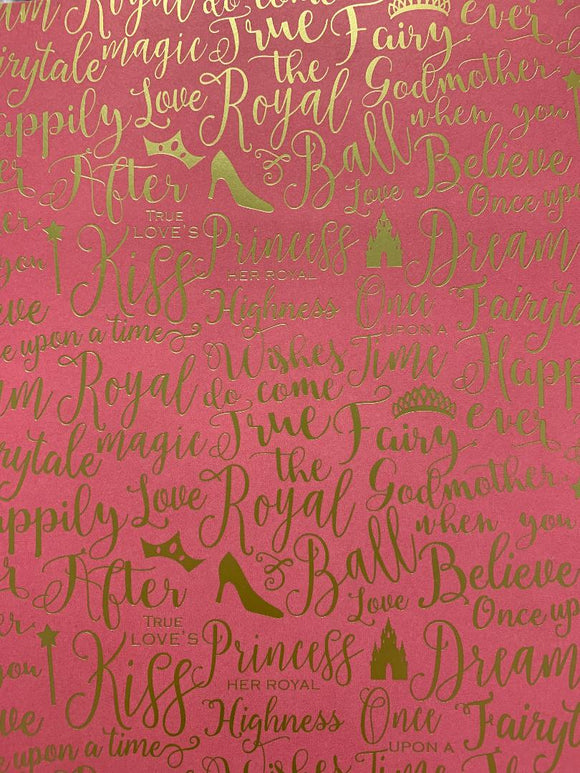 am Royal do come True Fairy ever
irytale magic the Godmother
appily Love Royal when you
er After Ball Love Believe
TRUE LOVE'S Kiss Princess Once upon
you HER ROYAL Highness Once UPON A Dream
eve Fairytale
e upon a time Wishes Time Happ
am Royal do come True Fairy ever
rytale magic the Godmother
appily Love Royal when you
er After Ball Love Believe
TRUE LOVE'S Kiss Princess Once up
you HER ROYAL Highness Once UPON A Dream
eve Fairytale
e upon a time Wishes Time Happ